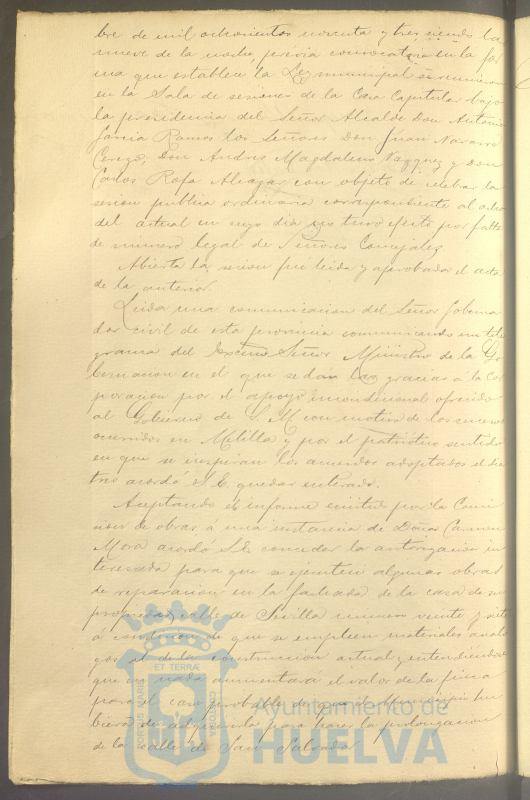 bre de mil ochocientos noventa y tres siendo la
nueve de la noche previa convocatoria en la for
ma que establece la Ley municipal se reunieron
en la Sala de sesiones de la Casa Capitular bajo
la presidencia del Señor Alcalde Don Antonio
Garcia Ramos los Señores Don Juan Navarro
Cerezo, Don Andres Magdaleno Vazquez y Don
Carlos Rofa Aleazar con objeto de celebrar la
sesion publica ordinaria correspondiente al
del actual en cuyo dia no tuvo efecto por falta
de numero legal de Señores Concejales
Abierta la sesion fue leida y aprobada el acta
de la anterior.
Leida una comunicacion del Señor Goberna
dor civil de esta provincia comunicando un tele
grama del Excmo Señor Ministro de la Go
bernacion en el que se dan las gracias á la Cor
poracion por el apoyo incondicional ofrecido
al Gobierno de S. M. con motivo de los sucesos
ocurridos en Melilla y por el patriotico sentido
en que se inspiran los acuerdos adoptados el dia
tres acordó S. E. quedar enterado.
Aceptando el informe emitido por la Comi
sion de obras á una instancia de Doña Carmen
Mora acordo S. E. conceder la autorizacion in
teresada para que se ejecuten algunas obras
de reparacion en la fachada de la casa de su
propiedad calle de Sevilla numero veinte y siete
á condicion de que se empleen materiales analo
gos al de la construccion actual y entendiendose
que en nada aumentará el valor de la finca
para el caso probable de que el Municipio hu
biera de adquirirla para hacer la prolongacion
de la calle de San Salvador
ET TERRÆ
POR TUS MARIS
CUSTODIA
Ayuntamiento de
HUELVA